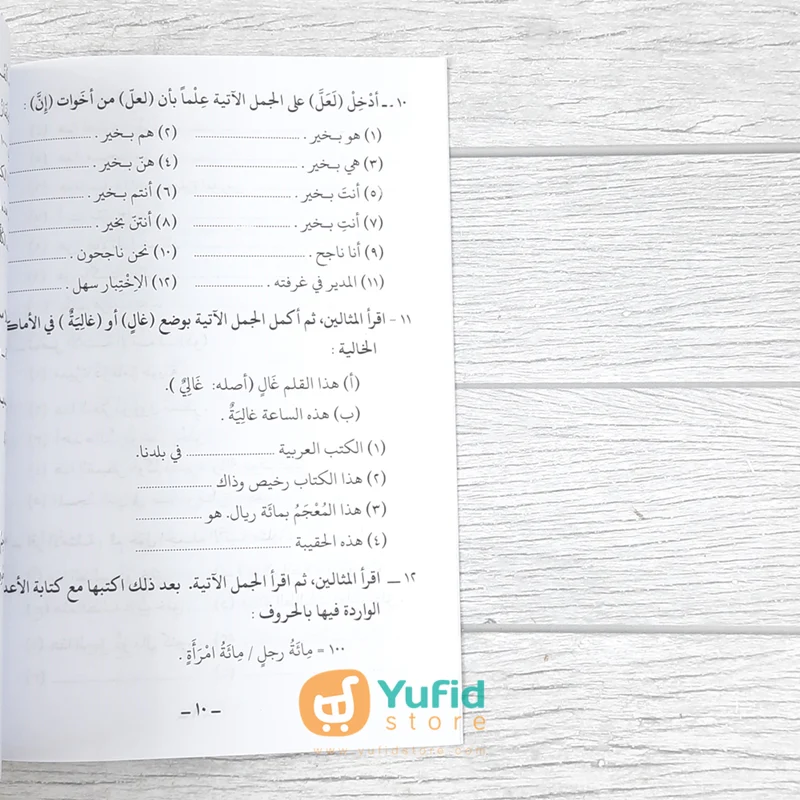 ١٠ ـ أدْخِلْ (لَعَلَّ) على الجمل الآتية عِلْماً بأن (لعلّ) من أخَوات (إنَّ) :
(١) هو بـخير . .................... (٢) هم بـخير . ....................
(٣) هي بـخير . .................... (٤) هنّ بـخير . ....................
(٥) أنتَ بـخير . .................... (٦) أنتم بـخير . ....................
(٧) أنتِ بـخير . .................... (٨) أنتنّ بخير . ....................
(٩) أنا ناجح . .................... (١٠) نحن ناجحون . ....................
(١١) المدير في غرفته . .................... (١٢) الاِخْتِبار سهل . ....................
١١ - اقرأ المثالين، ثم أكمل الجمل الآتية بوضع (غالٍ) أو (غالِيَةٌ) في
الخالية :
(أ) هذا القلم غَالٍ (أصله: غَالِيٌ ).
(ب) هذه الساعة غالِيَةٌ .
(١) الكتب العربية .................... في بلدنا.
(٢) هذا الكتاب رخيص وذاك ....................
(٣) هذا المُعْجَمُ بمائة ريال. هو ....................
(٤) هذه الحقيبة ....................
١٢ ـ اقرأ المثالين، ثم اقرأ الجمل الآتية. بعد ذلك اكتبها مع كتابة
الواردة فيها بالحروف :
١٠٠ = مِائَةُ رجلٍ / مِائَةُ امْرَأَةٍ .
ـ ١٠ ـ
Yufid
store
www.yufidstore.com